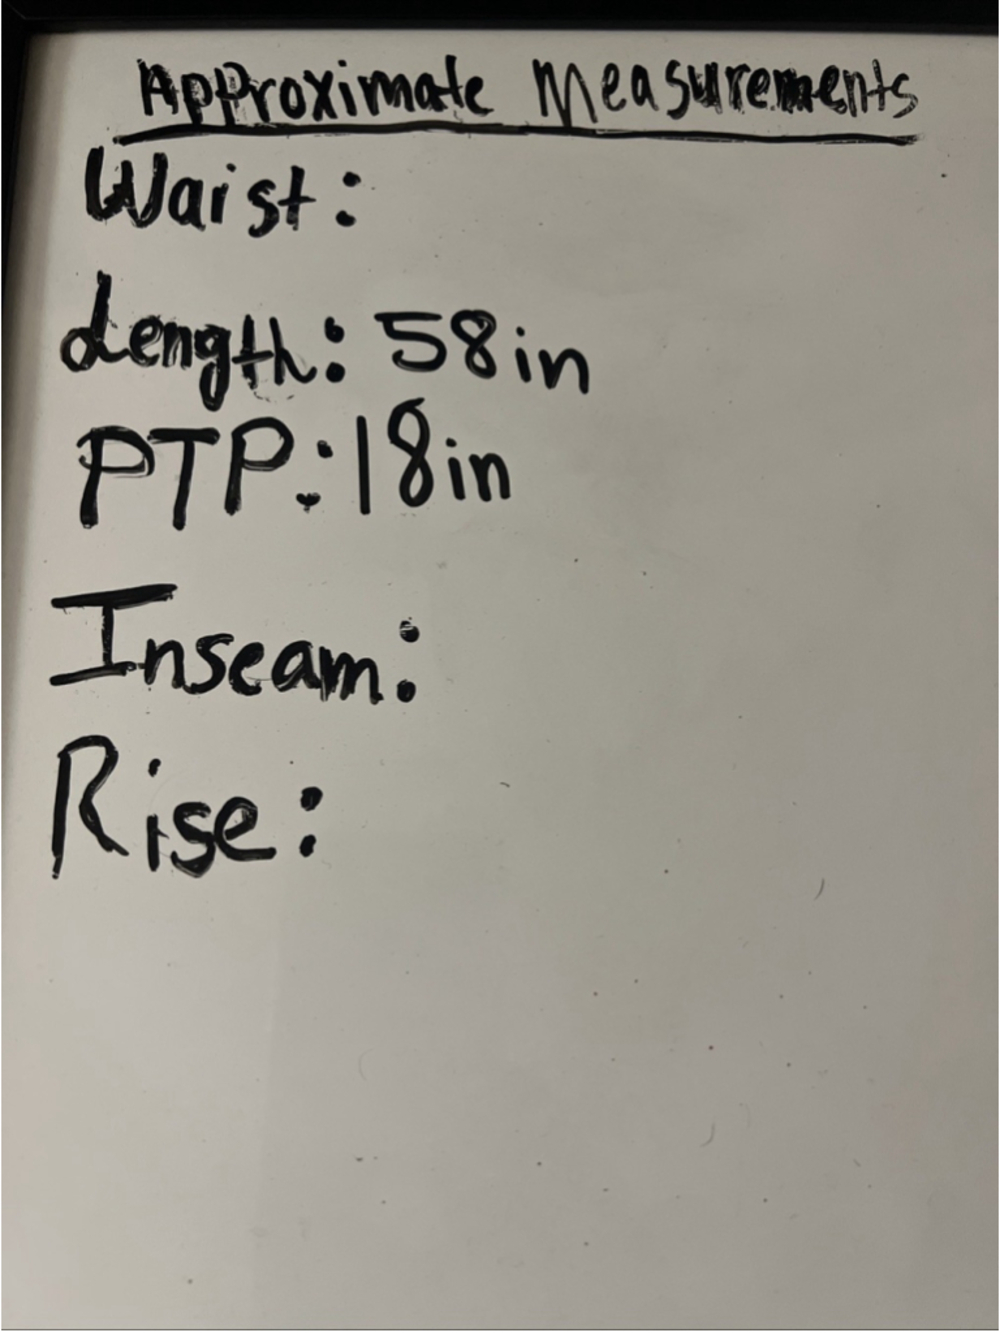 Approximate Measurements
Waist:
Length: 58in
PTP: 18in
Inseam:
Rise: